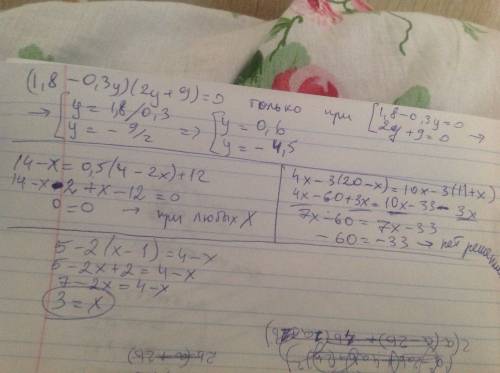 (1,8 - 0,3y)(2y + 9) = 0 только при [1,8 - 0,3y = 0
2y + 9 = 0 →
→ [y = 1,8/0,3
y = - 9/2 => [y = 0,6
y = - 4,5
14 - x = 0,5(4 - 2x) + 12
14 - x - 2 + x - 12 = 0
0 = 0 → при любых x
4x - 3(20 - x) = 10x - 3(11 + x)
4x - 60 + 3x = 10x - 33 - 3x
7x - 60 = 7x - 33
- 60 = - 33 → нет решения
5 - 2(x - 1) = 4 - x
5 - 2x + 2 = 4 - x
7 - 2x = 4 - x
3 = x